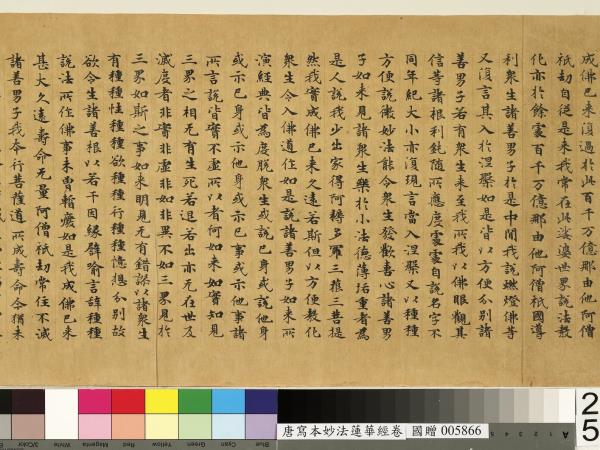 成佛已来復過於此百千万億那由他阿僧
祇劫自從是来我常在此娑婆世界說法教
化亦於餘處百千万億那由他阿僧祇國導
利衆生諸善男子於是中間我說燃燈佛等
又復言其入於涅槃如是皆以方便分別諸
善男子若有衆生来至我所我以佛眼觀其
信等諸根利鈍隨所應度處處自說名字不
同年紀大小亦復現言當入涅槃又以種種
方便說微妙法能令衆生發歡喜心諸善男
子如来見諸衆生樂於小法德薄垢重者為
是人說我少出家得阿耨多羅三藐三菩提
然我實成佛已来久遠若斯但以方便教化
衆生令入佛道作如是說諸善男子如来所
演經典皆為度脫衆生或說己身或說他身
或示己身或示他身或示己事或示他事諸
所言說皆實不虛所以者何如来如實知見
三界之相无有生死若退若出亦无在世及
滅度者非實非虛非如非異不如三界見於
三界如斯之事如来明見无有錯謬以諸衆生
有種種性種種欲種種行種種憶想分別故
欲令生諸善根以若干因緣譬喻言辭種種
說法所作佛事未曾暫廢如是我成佛已来
甚大久遠壽命无量阿僧祇劫常住不滅
諸善男子我本行菩薩道所成壽命今猶未
3/Color
White
Magenta
Red
Yellow
Green
Cyan
Blue
唐寫本妙法蓮華經卷
國贈 005866
A 1 2 3 4 5
25